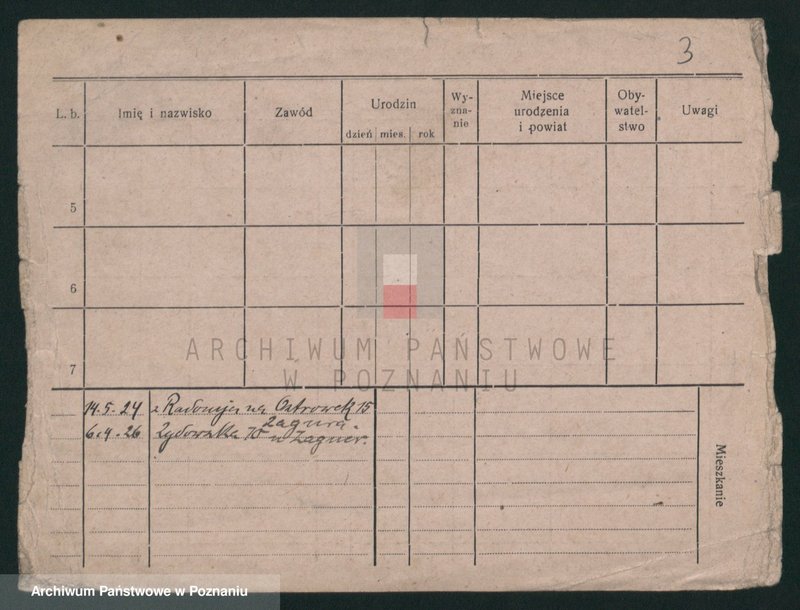 3
L. b.
Imię i nazwisko
Zawód
Urodzin
dzień mies. rok
Wy-
zna-
nie
Miejsce
urodzenia
i powiat
Oby-
watel-
stwo
Uwagi
5
6
7
ARCHIWUM PAŃSTWOWE
W POZNANIU
14.5.24 z na Ostrowek 15
6.4.26 Żydowska
Mieszkanie
Archiwum Państwowe w Poznaniu